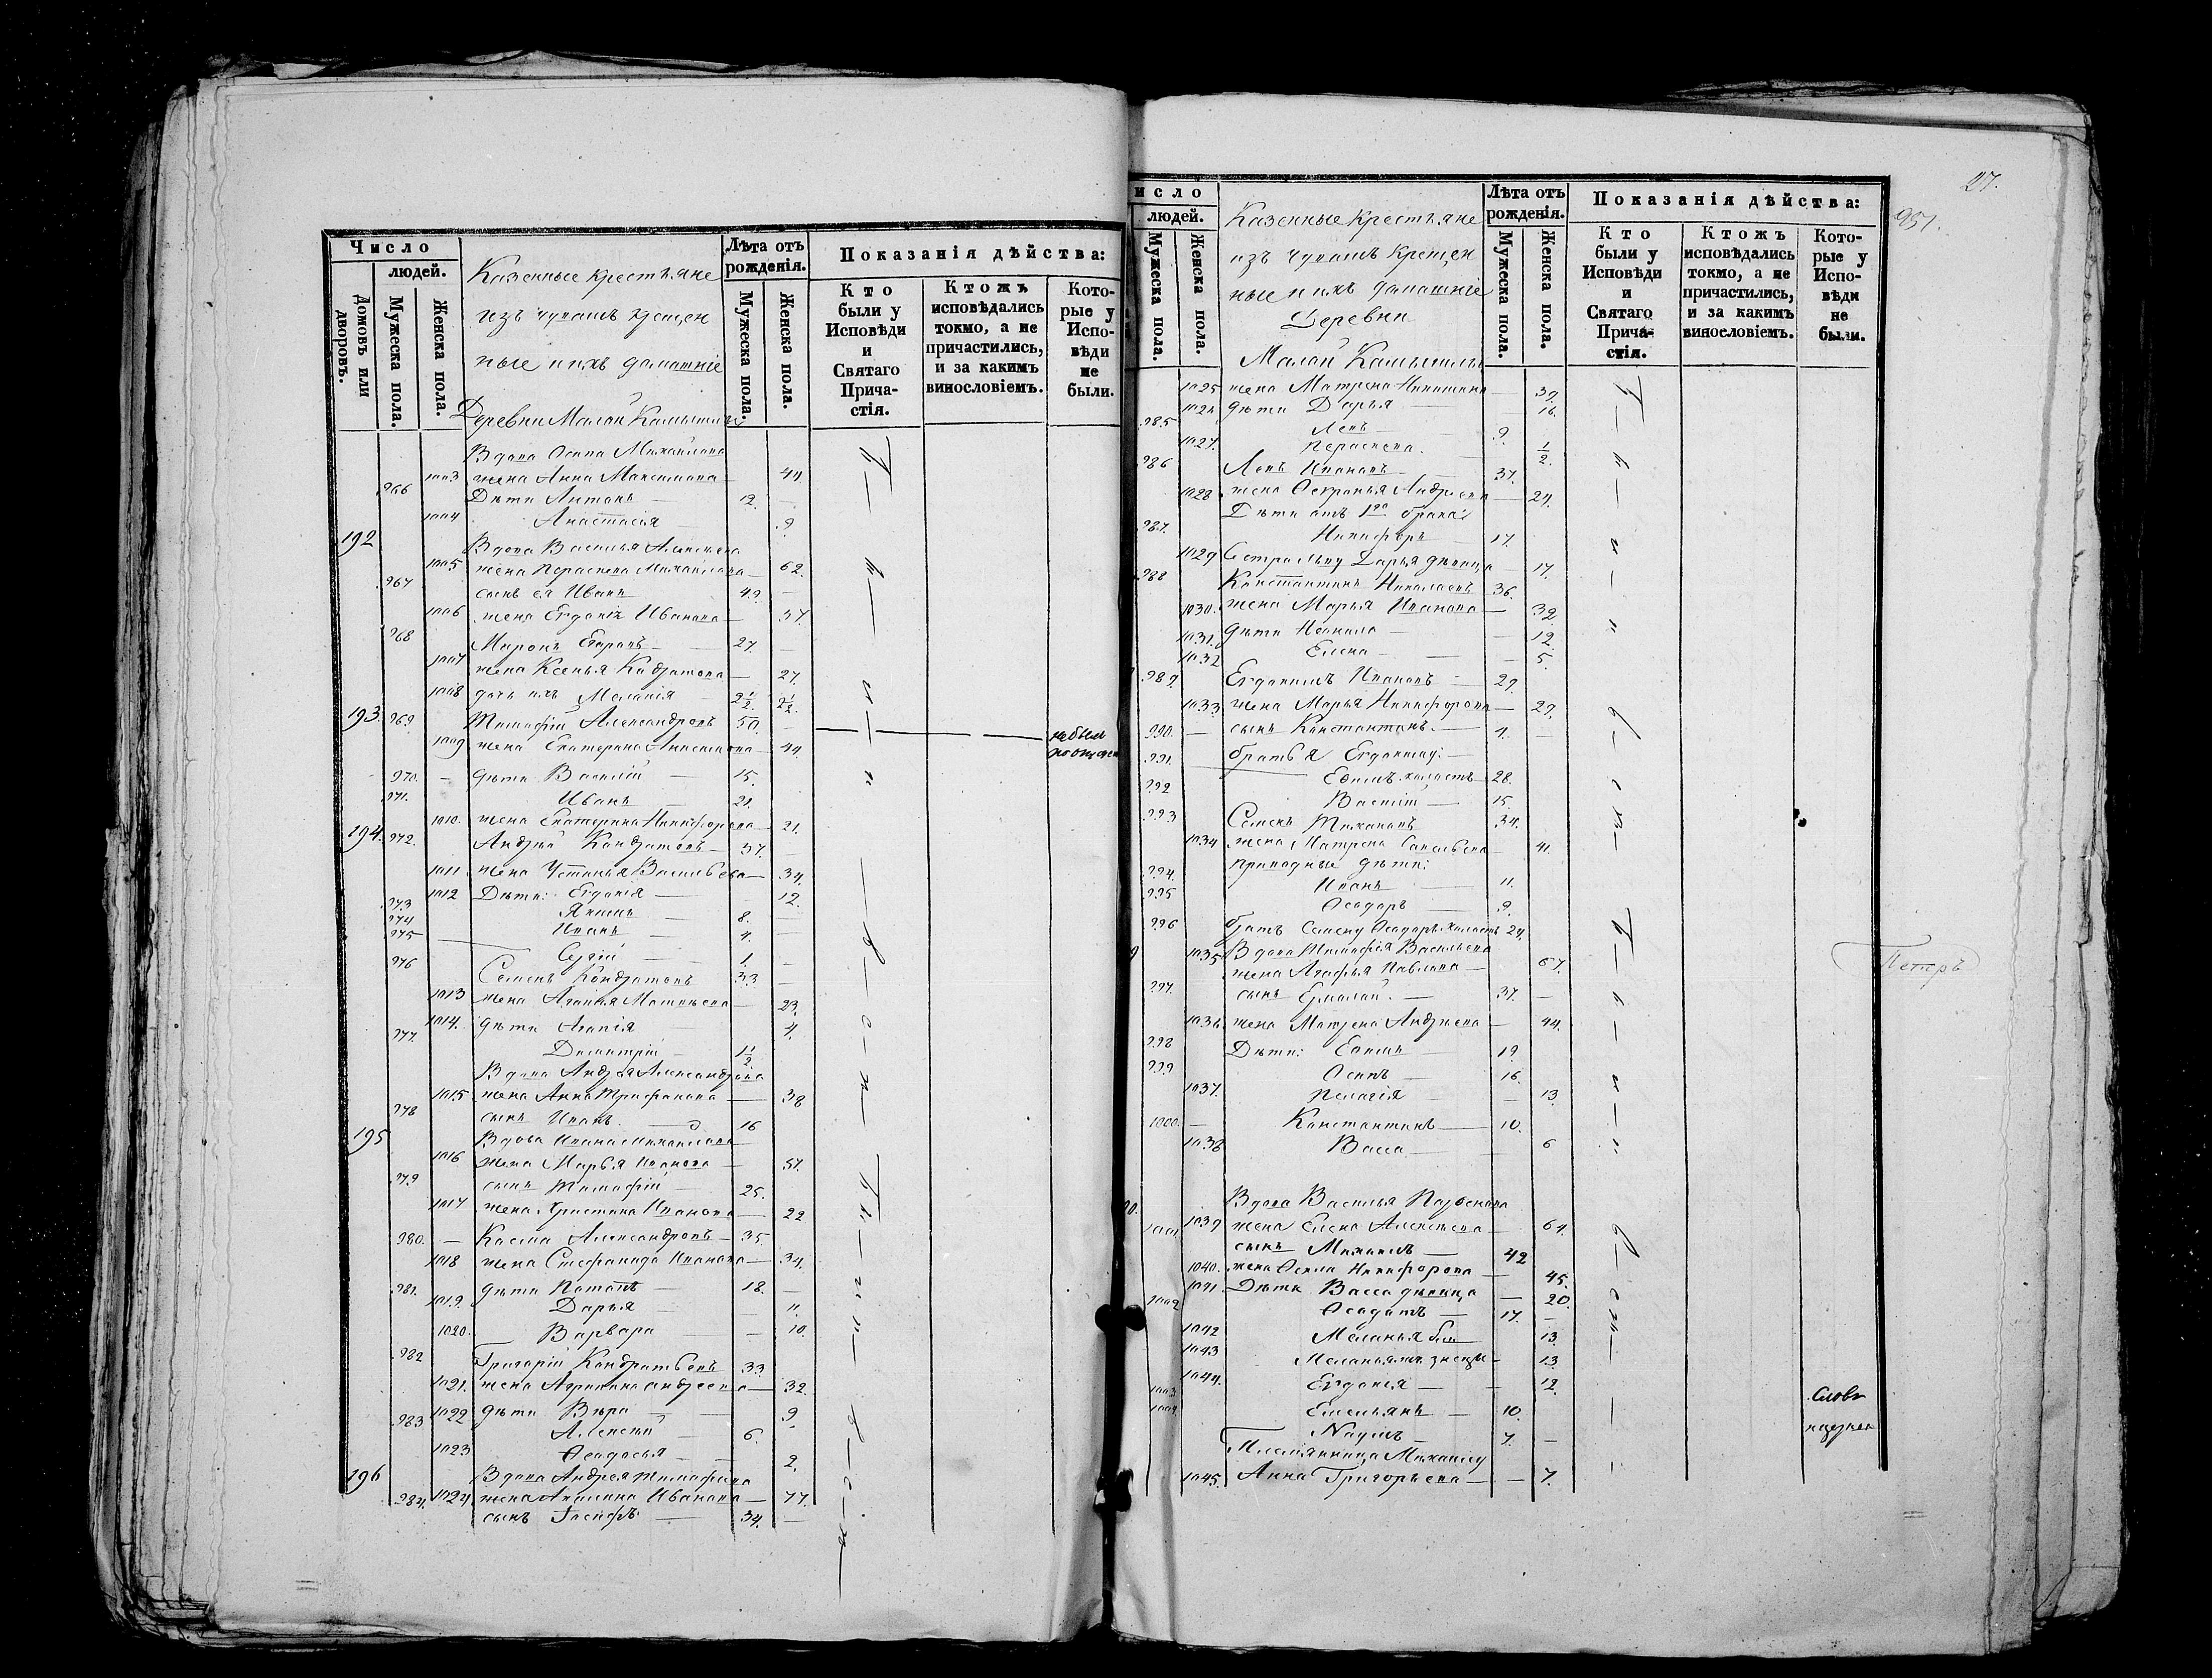 Число
людей.
Домовъ или дворовъ.
Мужеска пола.
Женска пола.
Казенные крестьяне
изъ чувашъ крещен
ные и ихъ домашніе
Деревни Малой Камышлы
Лѣта отъ рожденія.
Мужеска пола.
Женска пола.
Показанія дѣйства:
Кто были у Исповѣди и Святаго Причастія.
Ктожъ исповѣдались токмо, а не причастились, и за какимъ винословіемъ.
Которые у Исповѣди не были.
Вдова Осипа Михайлова
1003 жена Анна Максимова — 44.
966 Дѣти Антонъ — 12.
1004 Анастасія — 9.
192 Вдова Василья Алексѣева
1005 жена Параскева Михайлова — 62.
967 сынъ ея Иванъ 42. —
1006 жена Евдокія Иванова — 37.
968 Миронъ 27. —
1007 жена Ксенья — 27.
1008 дочь ихъ Меланія 2½.
193. 969. Тимофій Александровъ 50. —
1009 жена Екатерина — 44.
не былъ
970. — дѣти Василій — 15.
971. Иванъ 21.
1010. жена Екатерина Никифорова — 21.
194. 972. Андрей Кондратовъ — 37. —
1011. жена Устинья Васильева — 34.
1012 Дѣти: Евдокія — 12.
973 Якимъ — 8.
974 Иванъ — 4.
975 Сергій — 1.
976 Семенъ Кондратовъ 33 —
1013 жена Агафья Матвѣева — 23.
1014. дѣти Агапія 4.
977. Димитрій 1½
Вдова Андрея Александрова
1015 жена Анна Трифонова — 38
978 сынъ Иванъ. — 16
195 Вдова Ивана Михайлова
1016 жена Марья Иванова — 57.
979 сынъ Тимофій 25.
1017 жена Христина Иванова — 22
980. — Косма Александровъ — 35.
1018 жена Стефанида Иванова — 34.
981. дѣти Потапъ — 18. —
1019. Дарья — 11.
1020. Варвара — 10.
982 Григорій Кондратьевъ 33.
1021. жена Агрипина Андреева — 32.
1022 дѣти Вѣра — 9
983 Алексѣй 6.
1023 Ѳеодосья — 2.
196 Вдова Андрея Тимофѣева
1024 жена Акилина Иванова — 77.
984. сынъ Іосифъ — 34. —
27.
951.
исло
людей.
Мужеска пола.
Женска пола.
Казенные крестьяне
изъ чувашъ крещен
ные и ихъ домашніе
Деревни
Малой Камышлы
Лѣта отъ рожденія.
Мужеска пола.
Женска пола.
Показанія дѣйства:
Кто были у Исповѣди и Святаго Причастія.
Ктожъ исповѣдались токмо, а не причастились, и за какимъ винословіемъ.
Которые у Исповѣди не были.
1025 жена Матрена Никитина — 37.
1026 дѣти Дарья — 16.
985 Левъ — 9.
1027. Параскева. ½.
986 Левъ Ивановъ 37.
1028. жена Андреева — 24.
Дѣти отъ 1го брака:
987. Никифоръ 17.
1029 Сестра Льву Дарья дѣвица — 17.
988 Константинъ Николаевъ 36.
1030. жена Марья Иванова — 32.
1031. дѣти Неонила — 12.
1032 Елена — 5.
989. Евдокимъ Ивановъ — 29.
1033 жена Марья Никифорова — 29.
990. — сынъ Константинъ. — 1. —
991. братья Евдокиму:
Ефимъ холостъ 28.
992 Василій — 15.
993 Семенъ 34.
1034 жена Матрена Савельева — 41.
приводные дѣти:
994. Иванъ — 11.
995 Ѳеодоръ — 9.
996 братъ Семену Ѳеодоръ холостъ 24.
Вдова Тимофія Васильева
1035 жена Агафья Павлова — 67.
Петръ
997. сынъ Ермолай. — 37. —
1036. жена Матрена Андреева — 44.
998 Дѣти: Ефимъ 19
999 Осипъ — 16.
1037. Пелагія — 13.
1000. — Константинъ — 10.
1038 Васса — 6
Вдова Василья Парфенова
1039 жена Елена Алексѣева — 64.
1001 сынъ Михаилъ — 42
1040. жена Ѳекла Никифорова — 45.
1041. Дѣти Васса дѣвица — 20.
1002 Ѳеодотъ — 17. —
1042 Меланья 13.
1043 Меланья — 13.
1044. Евдокія — 12.
1003 Емельянъ — 10.
1004 Наумъ — 7. —
Племянница Михаилу
1045. Анна Григорьева — 7.